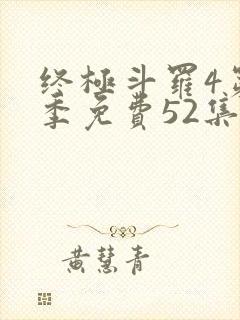 终極斗羅4第
季免費52集
黄慧青